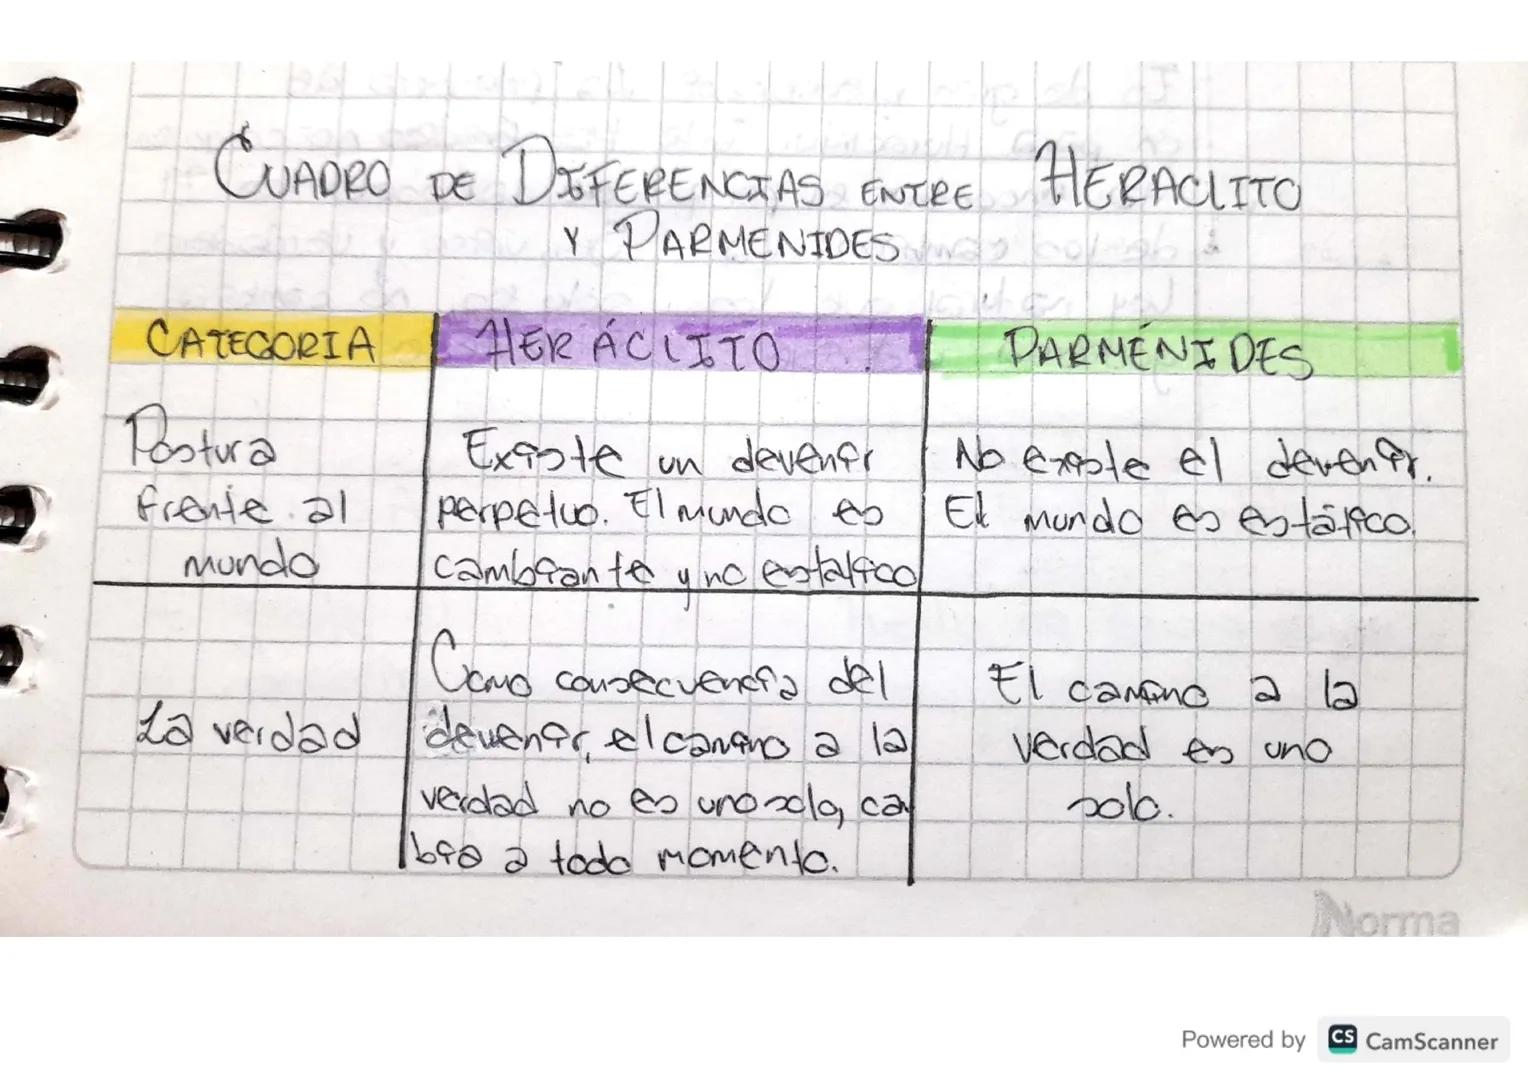 CUADRO DE DIFERENCIAS ENTRE HERACLITO
Y PARMENIDES
CATEGORIA
HERÁCLITO
PARMÉNIDES
Postura
frente al
mundo
Existe un devenir
perpetuo. El mundo es
cambiante y no estatico
No existe el devenir.
El mundo es estático.
La verdad
Como consecuencia del
devenir, el camino a la
verdad no es uno solo, ca
bia a todo momento.
El camino a la
verdad es uno
solo.
Norma
Powered by CS CamScanner